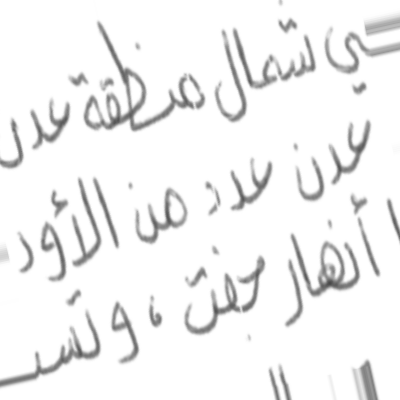 في شمال منطقة عدن
عدن عدد من الأود
أنهار جفت ، وتس